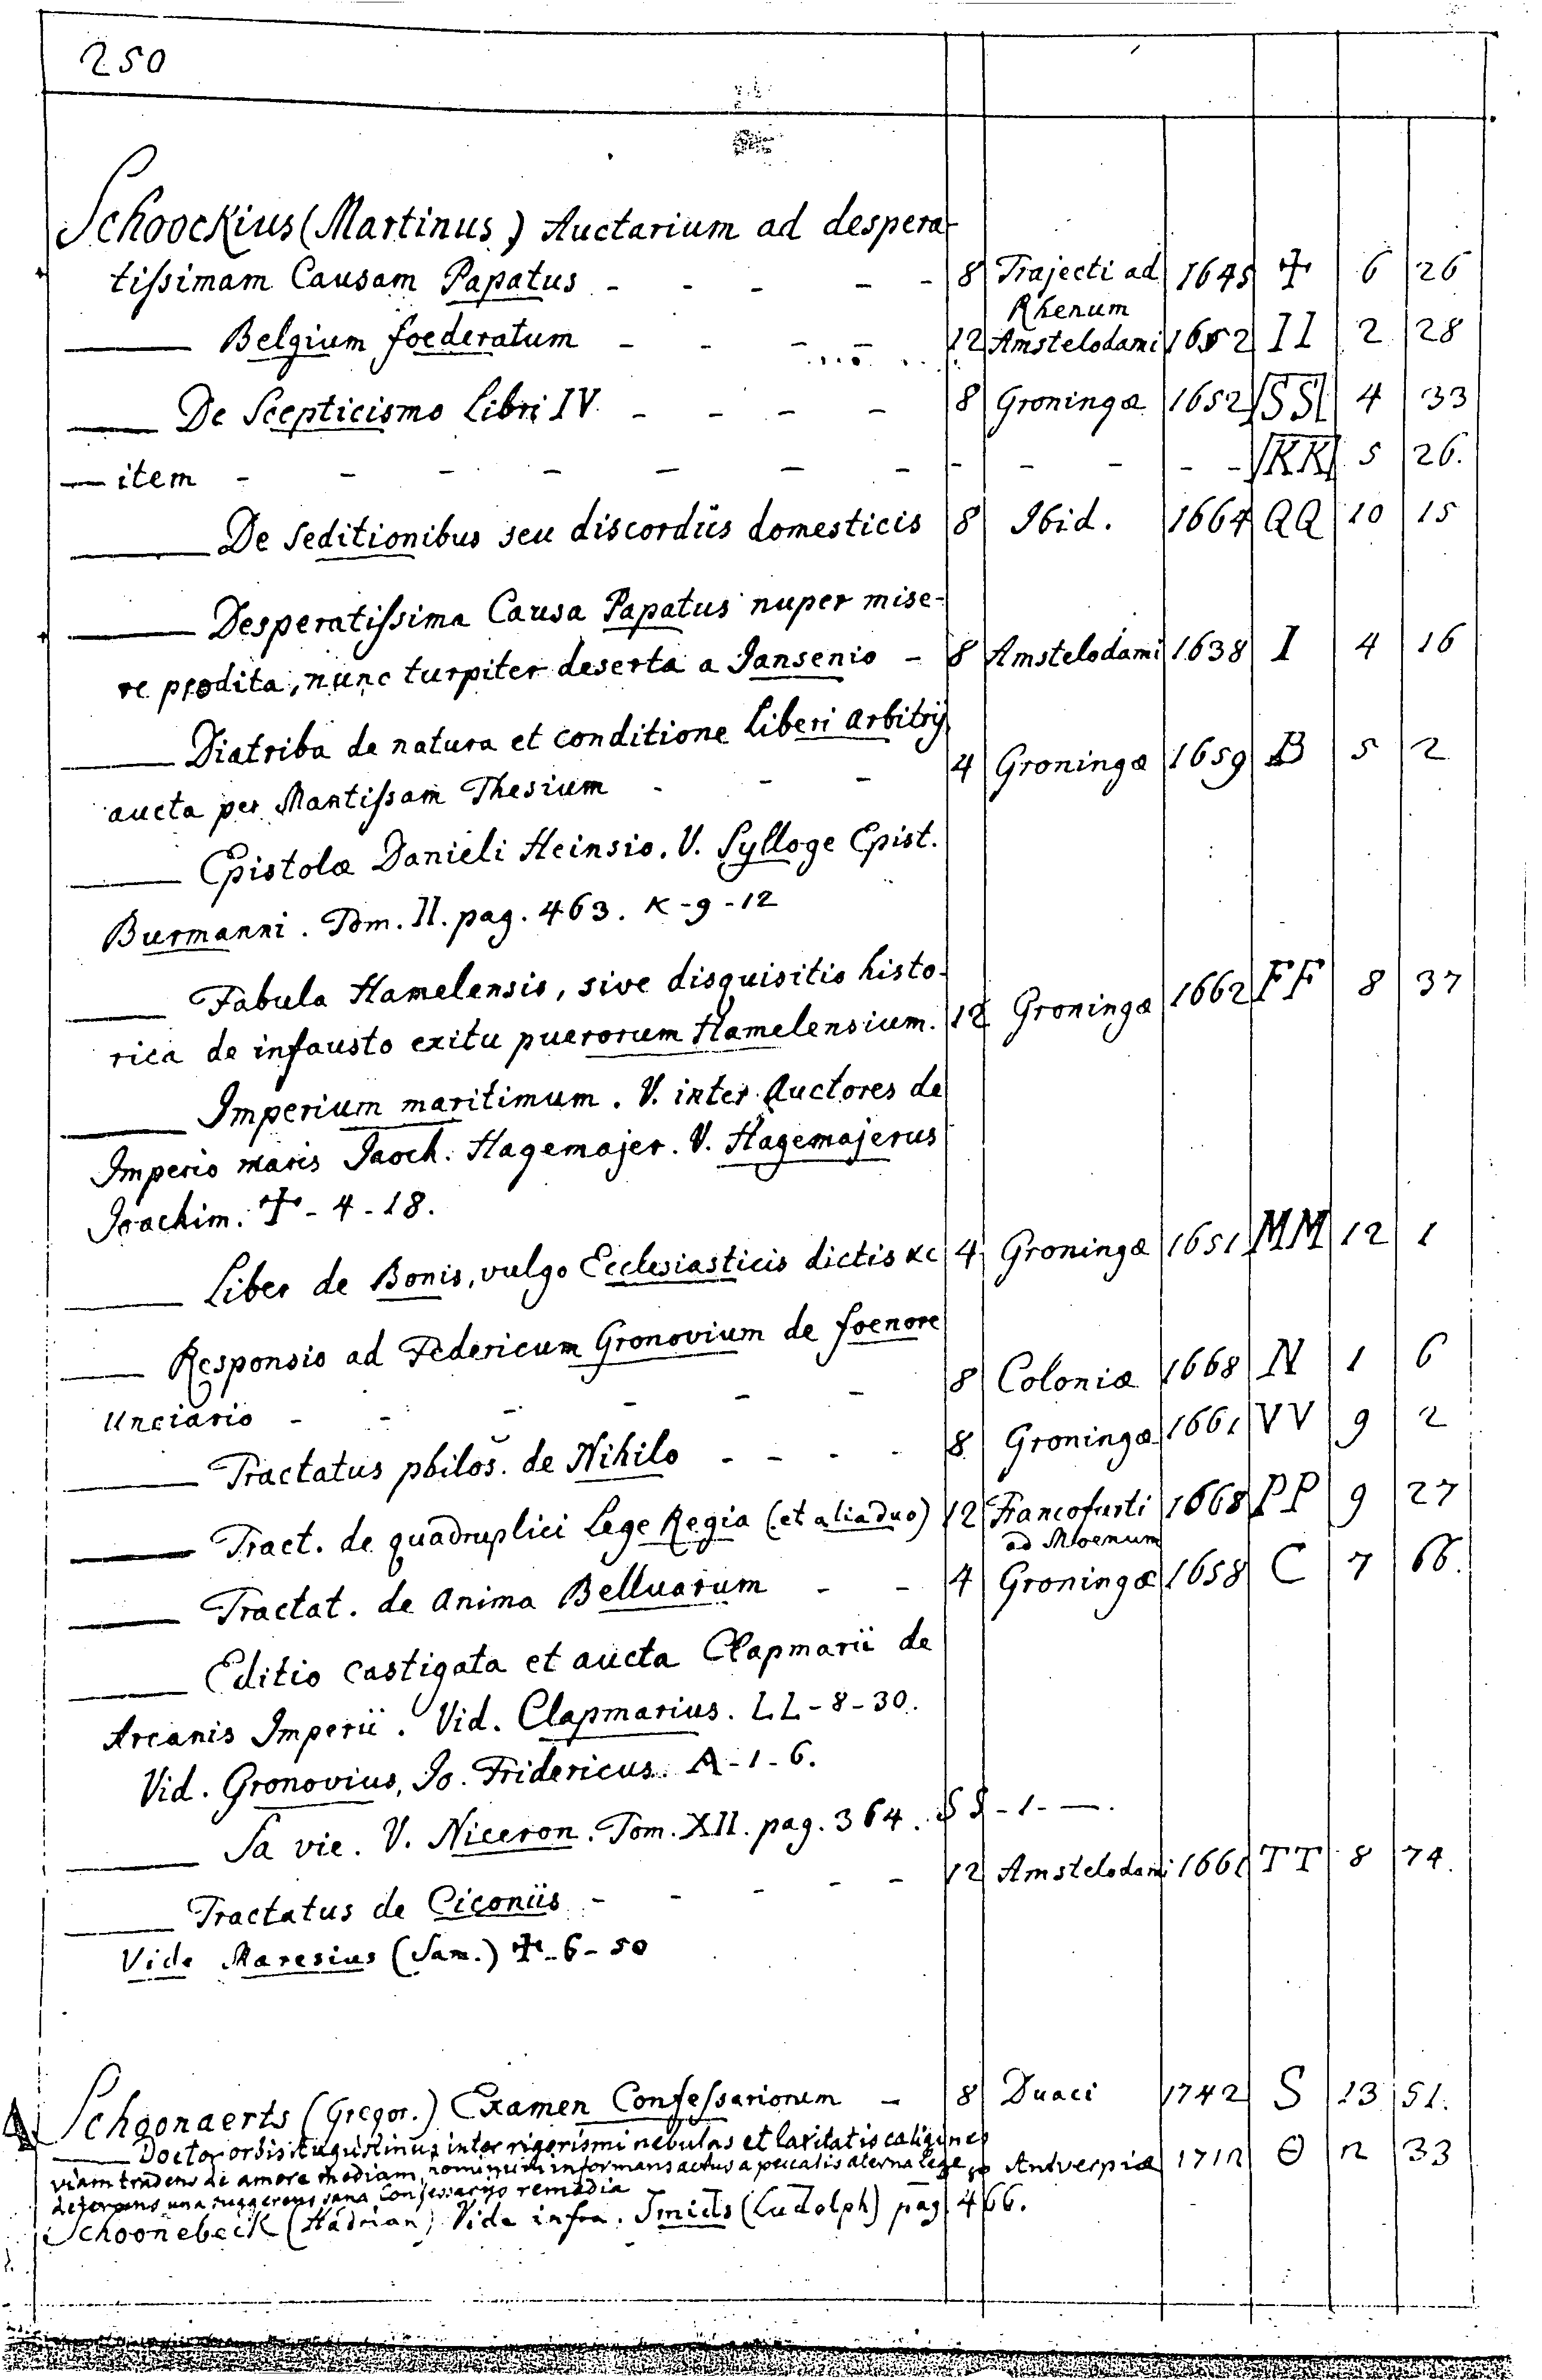 250
Schoockius (Martinus) Auctarium ad despera-
tissimam Causam Papatus - - - - - 8 Trajecti ad Rhenum 1645 ✝ 6 26
—— Belgium foederatum - - - - 12 Amstelodami 1652 II 2 28
—— De Scepticismo Libri IV. - - - - 8 Groningæ 1652 SS 4 33
— item - - - - - - - - - - - - KK 5 26.
—— De Seditionibus seu discordiis domesticis 8 Ibid. 1664 QQ 10 15
—— Desperatissima Causa Papatus nuper mise-
re prodita, nunc turpiter deserta a Jansenio - 8 Amstelodami 1638 I 4 16
—— Diatriba de natura et conditione Liberi arbitrij
aucta per Mantissam Thesium - - - 4 Groningæ 1659 B 5 2
—— Epistolæ Danieli Heinsio. V. Sylloge Epist.
Burmanni. Tom. II. pag. 463. K-9-12
—— Fabula Hamelensis, sive disquisitio histo-
rica de infausto exitu puerorum Hamelensium. 12 Groningæ 1662 FF 8 37
—— Imperium maritimum. V. inter Auctores de
Imperio maris Jaoch. Hagemajer. V. Hagemajerus
Joachim. ✝-4-18.
—— Liber de Bonis, vulgo Ecclesiasticis dictis &c 4 Groningæ 1651 MM 12 1
—— Responsio ad Federicum Gronovium de foenore
Unciario - - - - - - 8 Coloniæ 1668 N 1 6
—— Tractatus philos. de Nihilo - - - - 8 Groningæ 1661 VV 9 2
—— Tract. de quadruplici Lege Regia (et alia duo) 12 Francofurti ad Moenum 1668 PP 9 27
—— Tractat. de anima Belluarum - - 4 Groningæ 1658 C 7 66.
—— Editio castigata et aucta Clapmarii de
Arcanis Imperii. Vid. Clapmarius. LL-8-30.
Vid. Gronovius, Jo. Fridericus. A-1-6.
—— Sa vie. V. Niceron. Tom. XII. pag. 364. SS-1-—.
—— Tractatus de Ciconiis - - - - - 12 Amstelodami 1661 TT 8 74.
Vide Maresius (Sam.) ✝-6-50
Schoonaerts (Gregor.) Examen Confessariorum - 8 Duaci 1742 S 13 51.
—— Doctor orbis Augustinus inter rigorismi nebulas et laxitatis caligines
viam tradens de amore mediam, hominum informans actus a peccatis æterna lege 8 Antverpiæ 1712 Θ 12 33
una suggerens sana Confessarijs remedia
Schoonebeck (Hadrian) Vide infra. Smids (Ludolph) pag. 466.